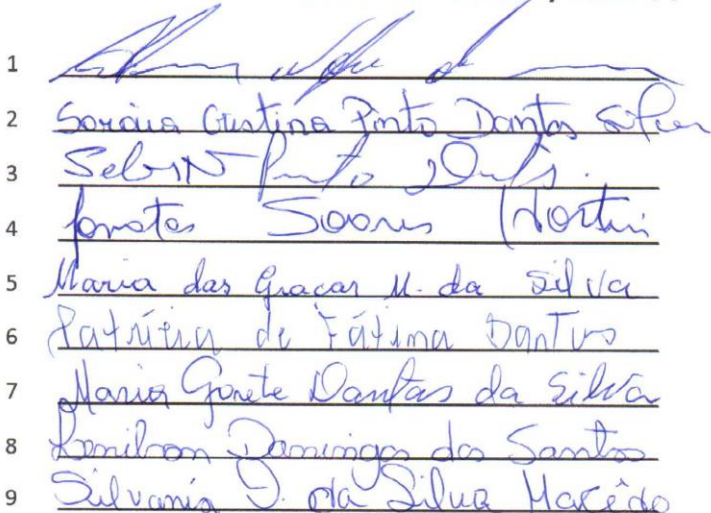 1
2 Soraia Cristina Pinto Dantas Silva
3 Pinto
4 Jonatas Soares Martins
5 Maria das Graças M. da Silva
6 Patrícia de Fátima Dantas
7 Maria Gorete Dantas da Silva
8 Domingos dos Santos
9 Silvania J. da Silva Macêdo